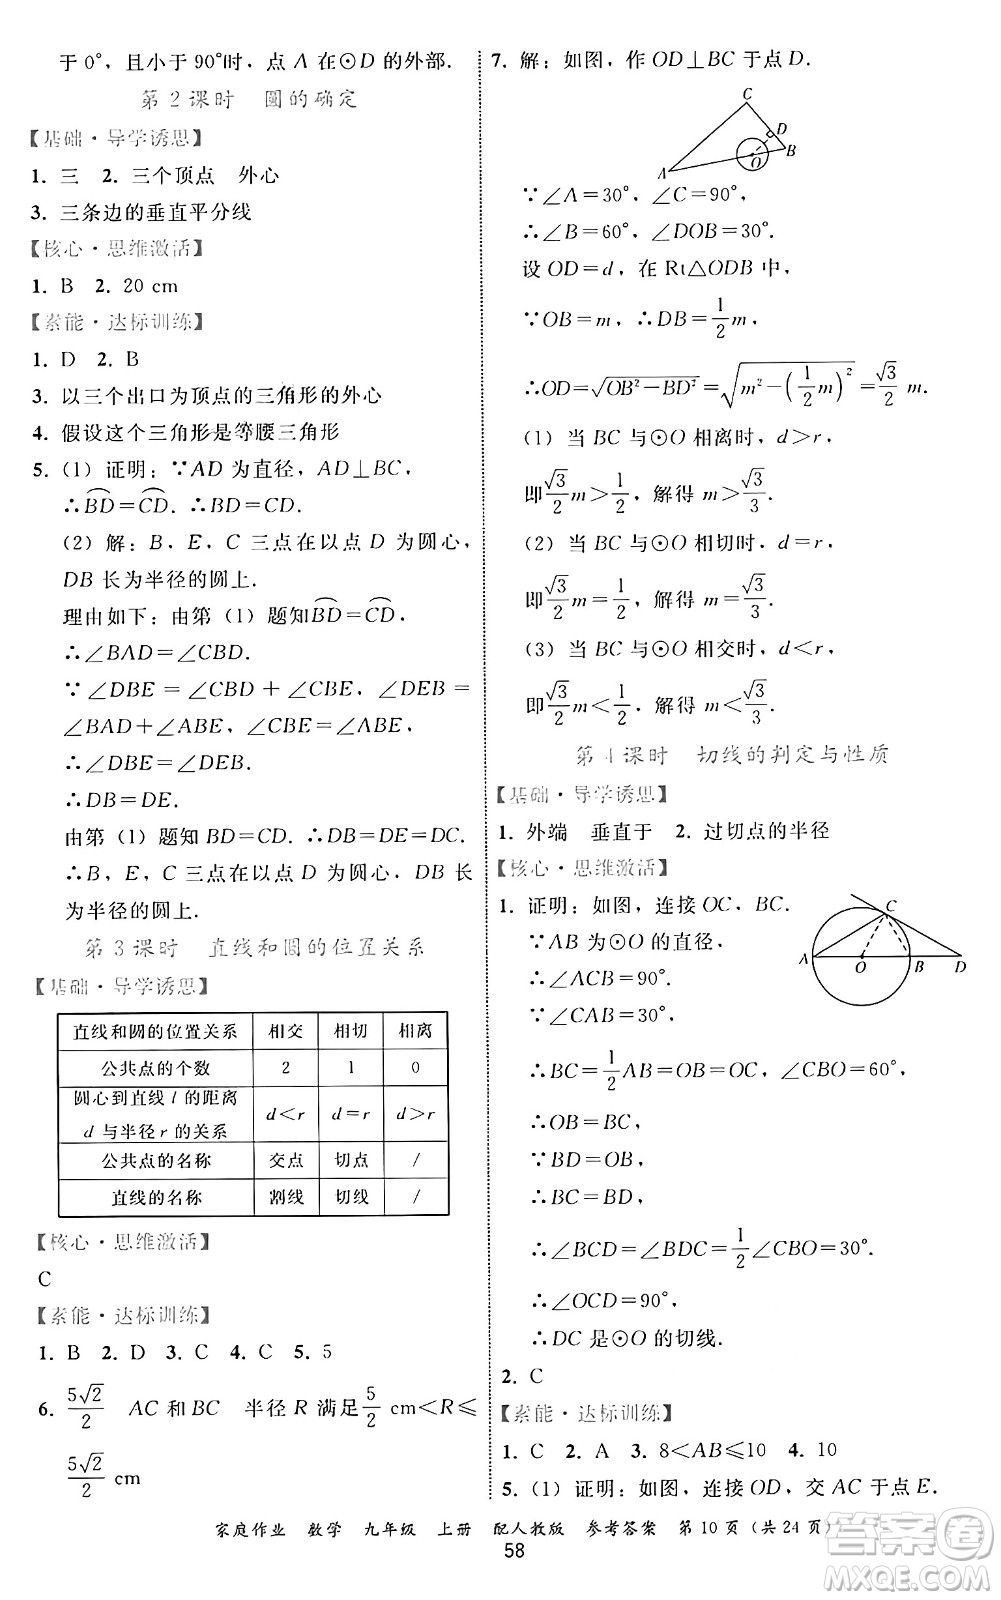 于 0°,且小于 90°时,点 A 在⊙D 的外部.
第 2 课时　圆的确定
【基础·导学诱思】
1. 三　2. 三个顶点　外心
3. 三条边的垂直平分线
【核心·思维激活】
1. B　2. 20 cm
【素能·达标训练】
1. D　2. B
3. 以三个出口为顶点的三角形的外心
4. 假设这个三角形是等腰三角形
5. (1) 证明:∵AD 为直径,AD⊥BC,
∴⌒BD=⌒CD. ∴BD=CD.
(2) 解:B,E,C 三点在以点 D 为圆心,
DB 长为半径的圆上.
理由如下:由第(1)题知⌒BD=⌒CD,
∴∠BAD=∠CBD.
∵∠DBE=∠CBD+∠CBE,∠DEB=
∠BAD+∠ABE,∠CBE=∠ABE,
∴∠DBE=∠DEB.
∴DB=DE.
由第(1)题知 BD=CD. ∴DB=DE=DC.
∴B,E,C 三点在以点 D 为圆心,DB 长
为半径的圆上.
第 3 课时　直线和圆的位置关系
【基础·导学诱思】
直线和圆的位置关系　相交　相切　相离
公共点的个数　2　1　0
圆心到直线 l 的距离
d 与半径 r 的关系　d<r　d=r　d>r
公共点的名称　交点　切点　/
直线的名称　割线　切线　/
【核心·思维激活】
C
【素能·达标训练】
1. B　2. D　3. C　4. C　5. 5
6. 5√2/2　AC 和 BC　半径 R 满足 5/2 cm<R≤
5√2/2 cm
7. 解:如图,作 OD⊥BC 于点 D.
C
D
B
O
A
∵∠A=30°,∠C=90°,
∴∠B=60°,∠DOB=30°.
设 OD=d,在 Rt△ODB 中,
∵OB=m,∴DB=1/2 m,
∴OD=√(OB²−BD²)=√(m²−(1/2 m)²)=√3/2 m.
(1) 当 BC 与⊙O 相离时,d>r,
即 √3/2 m>1/2,解得 m>√3/3.
(2) 当 BC 与⊙O 相切时,d=r,
即 √3/2 m=1/2,解得 m=√3/3.
(3) 当 BC 与⊙O 相交时,d<r,
即 √3/2 m<1/2,解得 m<√3/3.
第 4 课时　切线的判定与性质
【基础·导学诱思】
1. 外端　垂直于　2. 过切点的半径
【核心·思维激活】
1. 证明:如图,连接 OC,BC.
∵AB 为⊙O 的直径,
∴∠ACB=90°.
∵∠CAB=30°,
∴BC=1/2 AB=OB,∠CBO=60°,
∴OB=BC.
∵BD=OB,
∴BC=BD,
∴∠BCD=∠BDC=1/2∠CBO=30°.
∴∠OCD=90°,
∴DC 是⊙O 的切线.
C
A
O
B
D
2. C
【素能·达标训练】
1. C　2. A　3. 8<AB≤10　4. 10
5. (1) 证明:如图,连接 OD,交 AC 于点 E.
家庭作业　数学　九年级　上册　配人教版　参考答案　第 10 页(共 24 页)
58
作业精灵
MXQE.COM